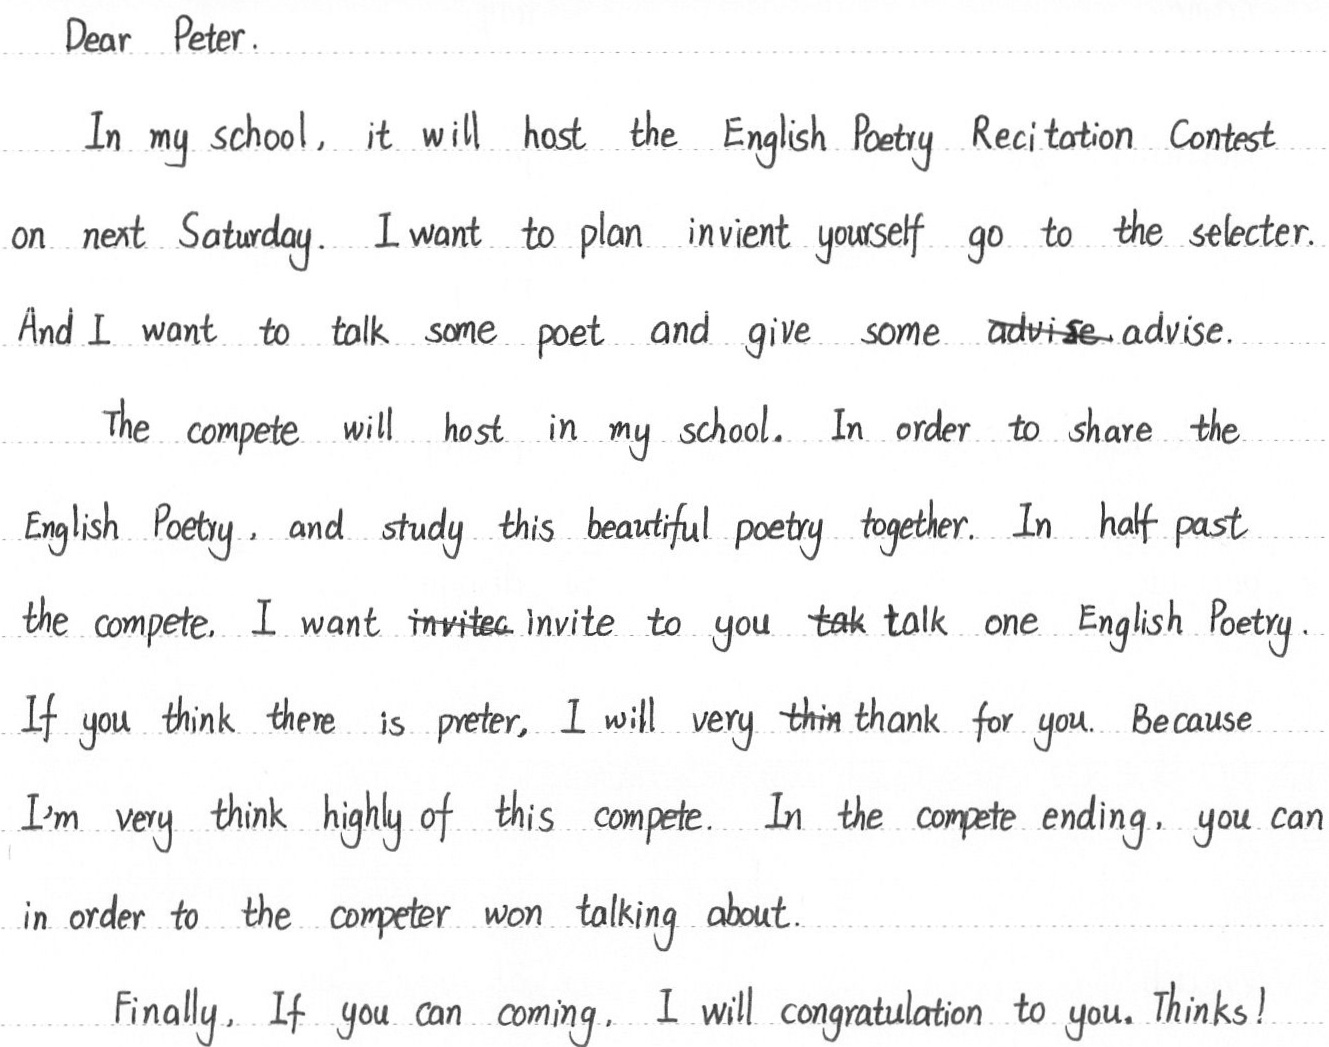 Dear Peter.
In my school, it will host the English Poetry Recitation Contest
on next Saturday. I want to plan invient yourself go to the selecter.
And I want to talk some poet and give some advise advise.
The compete will host in my school. In order to share the
English Poetry, and study this beautiful poetry together. In half past
the compete. I want invitec invite to you tak talk one English Poetry.
If you think there is preter, I will very thin thank for you. Because
I'm very think highly of this compete. In the compete ending, you can
in order to the competer won talking about.
Finally, If you can coming, I will congratulation to you. Thinks!